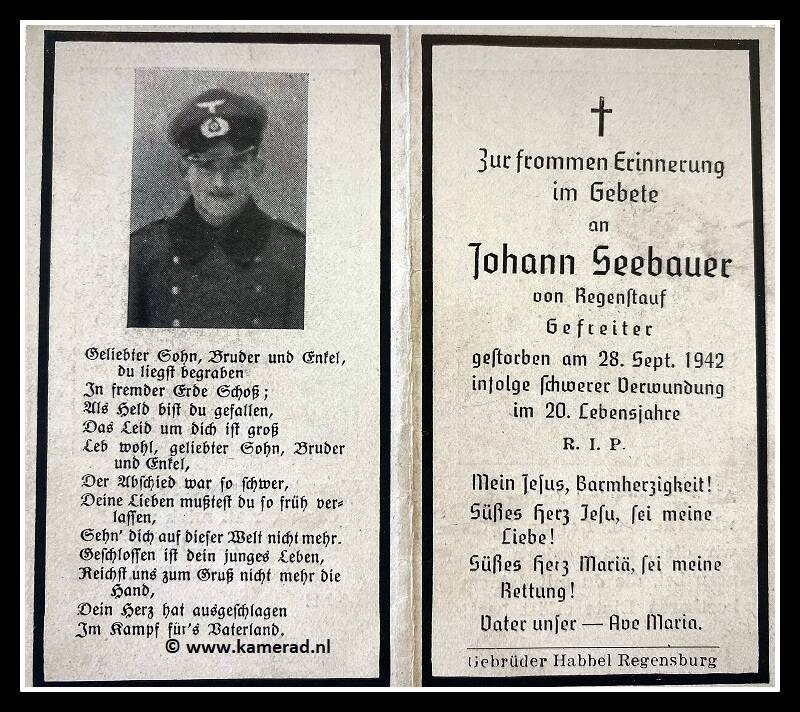 Geliebter Sohn, Bruder und Enkel,
du liegst begraben
In fremder Erde Schoß;
Als Held bist du gefallen,
Das Leid um dich ist groß
Leb wohl, geliebter Sohn, Bruder
und Enkel,
Der Abschied war so schwer,
Deine Lieben mußtest du so früh ver-
lassen,
Sehn' dich auf dieser Welt nicht mehr.
Geschlossen ist dein junges Leben,
Reichst uns zum Gruß nicht mehr die
Hand,
Dein Herz hat ausgeschlagen
Im Kampf für's Vaterland.
© www.kamerad.nl
Zur frommen Erinnerung
im Gebete
an
Johann Seebauer
von Regenstauf
Gefreiter
gestorben am 28. Sept. 1942
infolge schwerer Verwundung
im 20. Lebensjahre
R. I. P.
Mein Jesus, Barmherzigkeit!
Süßes Herz Jesu, sei meine
Liebe!
Süßes Herz Mariä, sei meine
Rettung!
Vater unser — Ave Maria.
Gebrüder Habbel Regensburg